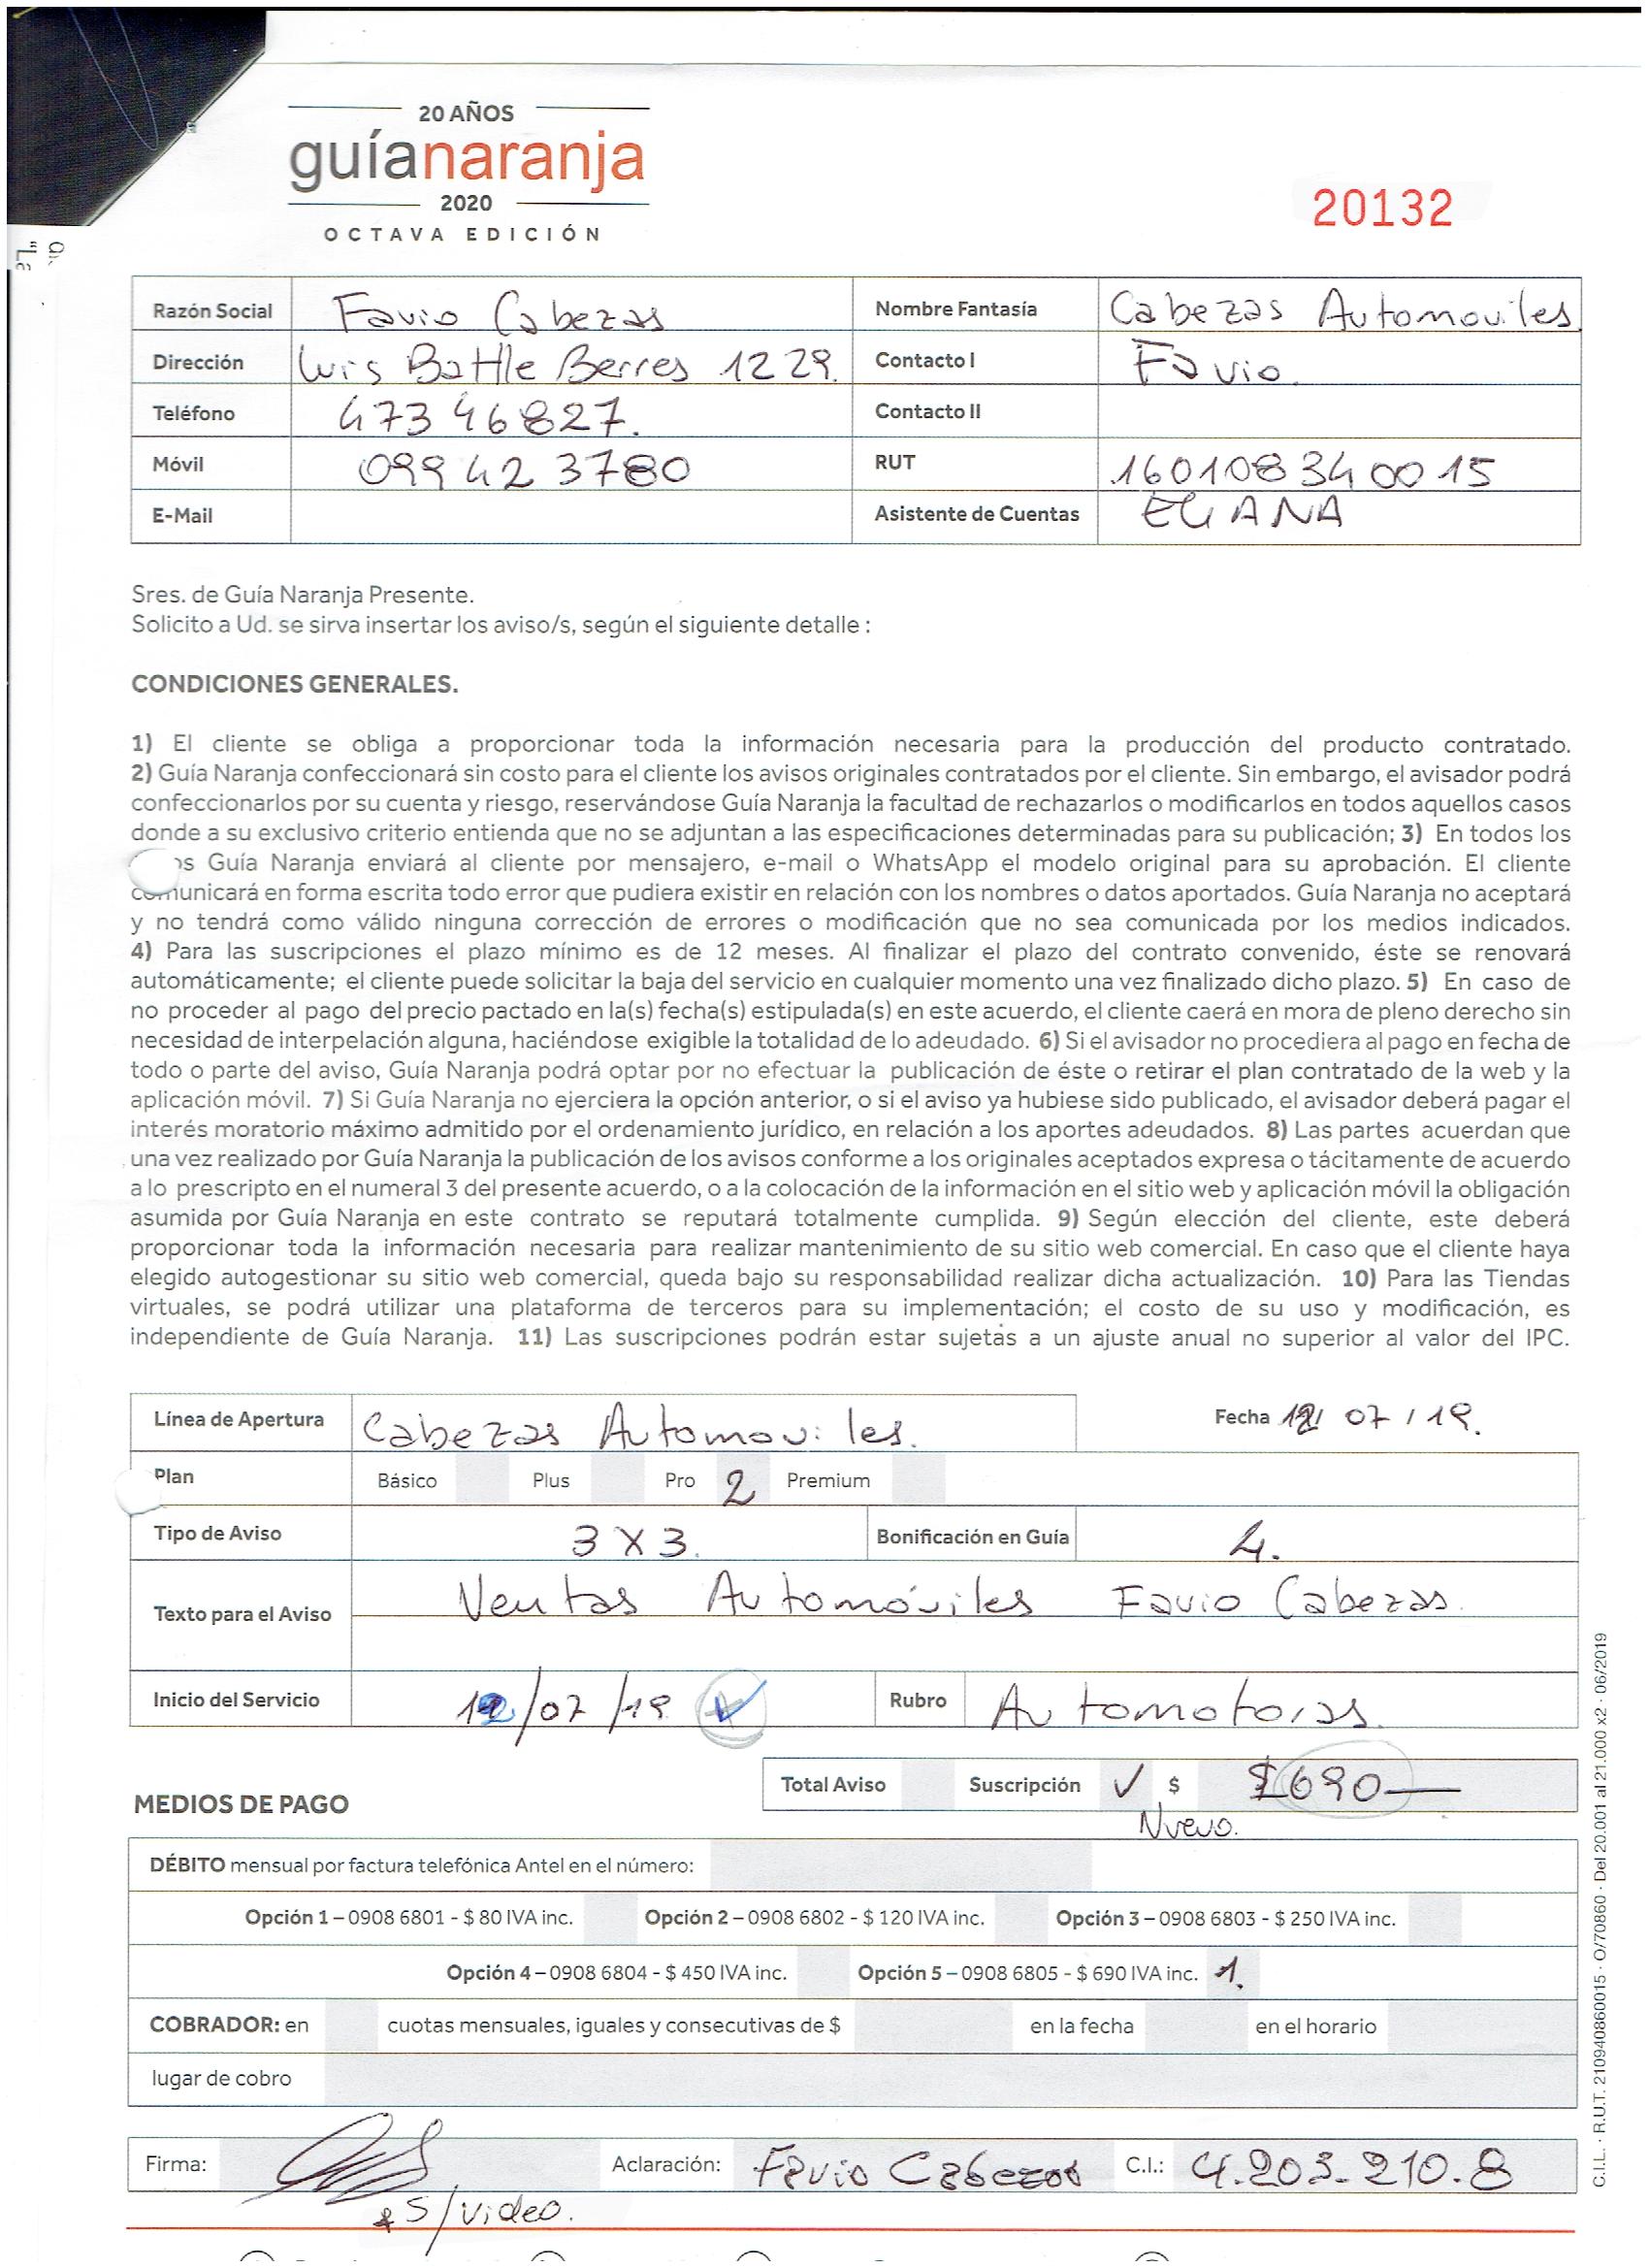 20 AÑOS
guíanaranja
2020
OCTAVA EDICIÓN
20132
Razón Social Favio Cabezas Nombre Fantasía Cabezas Automoviles.
Dirección Luis Batlle Berres 1229. Contacto I Favio.
Teléfono 473 46827. Contacto II
Móvil 099 423780 RUT 160108340015
E-Mail Asistente de Cuentas ELIANA
Sres. de Guía Naranja Presente.
Solicito a Ud. se sirva insertar los aviso/s, según el siguiente detalle :
CONDICIONES GENERALES.
1) El cliente se obliga a proporcionar toda la información necesaria para la producción del producto contratado.
2) Guía Naranja confeccionará sin costo para el cliente los avisos originales contratados por el cliente. Sin embargo, el avisador podrá
confeccionarlos por su cuenta y riesgo, reservándose Guía Naranja la facultad de rechazarlos o modificarlos en todos aquellos casos
donde a su exclusivo criterio entienda que no se adjuntan a las especificaciones determinadas para su publicación; 3) En todos los
Guía Naranja enviará al cliente por mensajero, e-mail o WhatsApp el modelo original para su aprobación. El cliente
comunicará en forma escrita todo error que pudiera existir en relación con los nombres o datos aportados. Guía Naranja no aceptará
y no tendrá como válido ninguna corrección de errores o modificación que no sea comunicada por los medios indicados.
4) Para las suscripciones el plazo mínimo es de 12 meses. Al finalizar el plazo del contrato convenido, éste se renovará
automáticamente; el cliente puede solicitar la baja del servicio en cualquier momento una vez finalizado dicho plazo. 5) En caso de
no proceder al pago del precio pactado en la(s) fecha(s) estipulada(s) en este acuerdo, el cliente caerá en mora de pleno derecho sin
necesidad de interpelación alguna, haciéndose exigible la totalidad de lo adeudado. 6) Si el avisador no procediera al pago en fecha de
todo o parte del aviso, Guía Naranja podrá optar por no efectuar la publicación de éste o retirar el plan contratado de la web y la
aplicación móvil. 7) Si Guía Naranja no ejerciera la opción anterior, o si el aviso ya hubiese sido publicado, el avisador deberá pagar el
interés moratorio máximo admitido por el ordenamiento jurídico, en relación a los aportes adeudados. 8) Las partes acuerdan que
una vez realizado por Guía Naranja la publicación de los avisos conforme a los originales aceptados expresa o tácitamente de acuerdo
a lo prescripto en el numeral 3 del presente acuerdo, o a la colocación de la información en el sitio web y aplicación móvil la obligación
asumida por Guía Naranja en este contrato se reputará totalmente cumplida. 9) Según elección del cliente, este deberá
proporcionar toda la información necesaria para realizar mantenimiento de su sitio web comercial. En caso que el cliente haya
elegido autogestionar su sitio web comercial, queda bajo su responsabilidad realizar dicha actualización. 10) Para las Tiendas
virtuales, se podrá utilizar una plataforma de terceros para su implementación; el costo de su uso y modificación, es
independiente de Guía Naranja. 11) Las suscripciones podrán estar sujetas a un ajuste anual no superior al valor del IPC.
Línea de Apertura Cabezas Automoviles. Fecha 12/07/19.
Plan Básico Plus Pro 2 Premium
Tipo de Aviso 3 X 3. Bonificación en Guía 4.
Texto para el Aviso Ventas Automóviles Favio Cabezas.
Inicio del Servicio 12/07/19 Rubro Automotoras.
Total Aviso Suscripción ✓ $ $690—
MEDIOS DE PAGO
Nuevo.
DÉBITO mensual por factura telefónica Antel en el número:
Opción 1 – 0908 6801 - $ 80 IVA inc. Opción 2 – 0908 6802 - $ 120 IVA inc. Opción 3 – 0908 6803 - $ 250 IVA inc.
Opción 4 – 0908 6804 - $ 450 IVA inc. Opción 5 – 0908 6805 - $ 690 IVA inc. 1.
COBRADOR: en cuotas mensuales, iguales y consecutivas de $ en la fecha en el horario
lugar de cobro
Firma: Aclaración: Favio Cabezas C.I.: 4.203.210.8
S/video.
C.I.L. · R.U.T. 210940860015 · O/70860 · Del 20.001 al 21.000 x2 · 06/2019